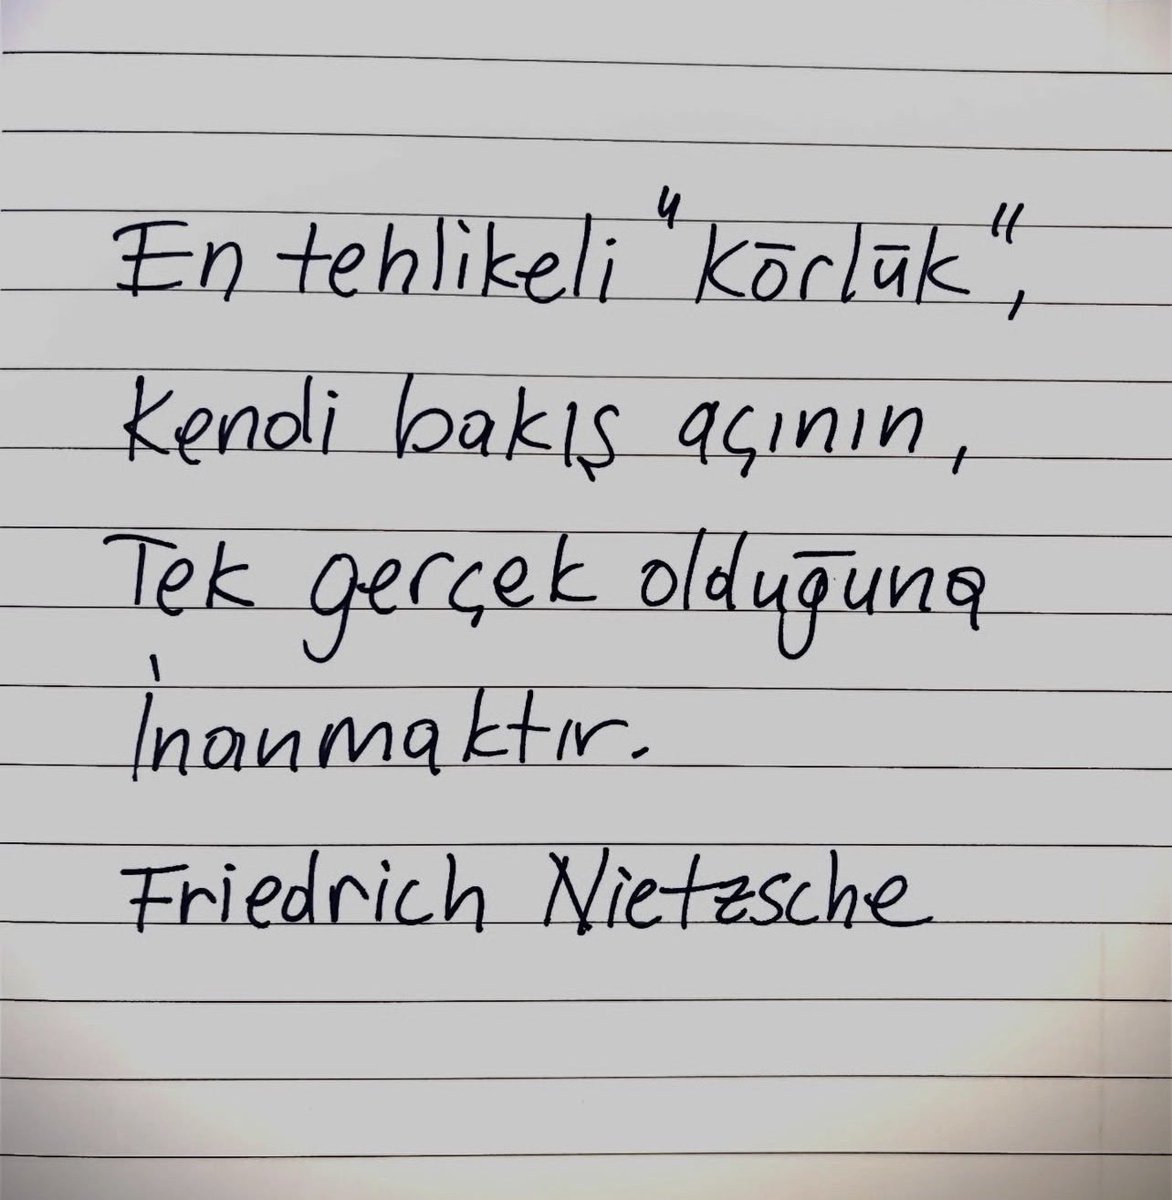 En tehlikeli "körlük",
Kendi bakış açının,
Tek gerçek olduğuna
İnanmaktır.
Friedrich Nietzsche